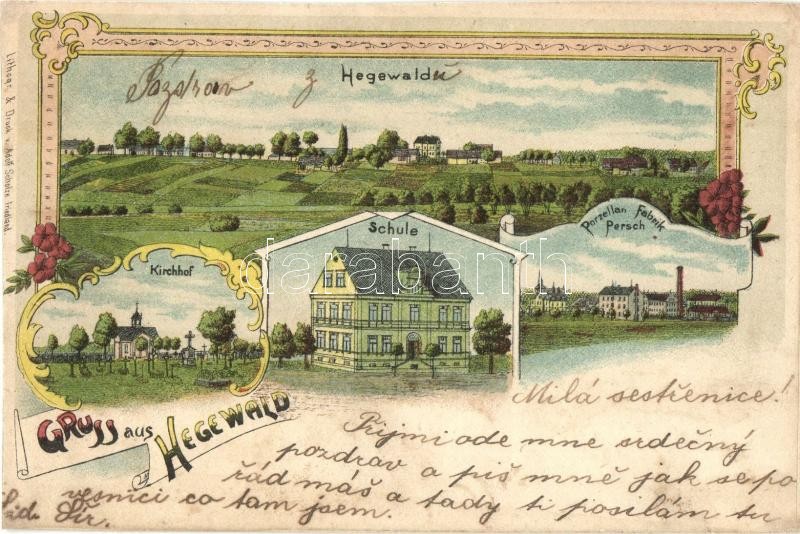 Pozdrav z Hegewaldu
Lithogr. & Druck v. Adolf Scholze Friedland.
Schule
Porzellan Fabrik
Persch
Kirchhof
darabanth
GRUSS aus HEGEWALD
Milá sestřenice!
Přijmi ode mne srdečný
pozdrav a piš mně jak se po
řád máš a tady ti posílám tu
vesnici co tam jsem.